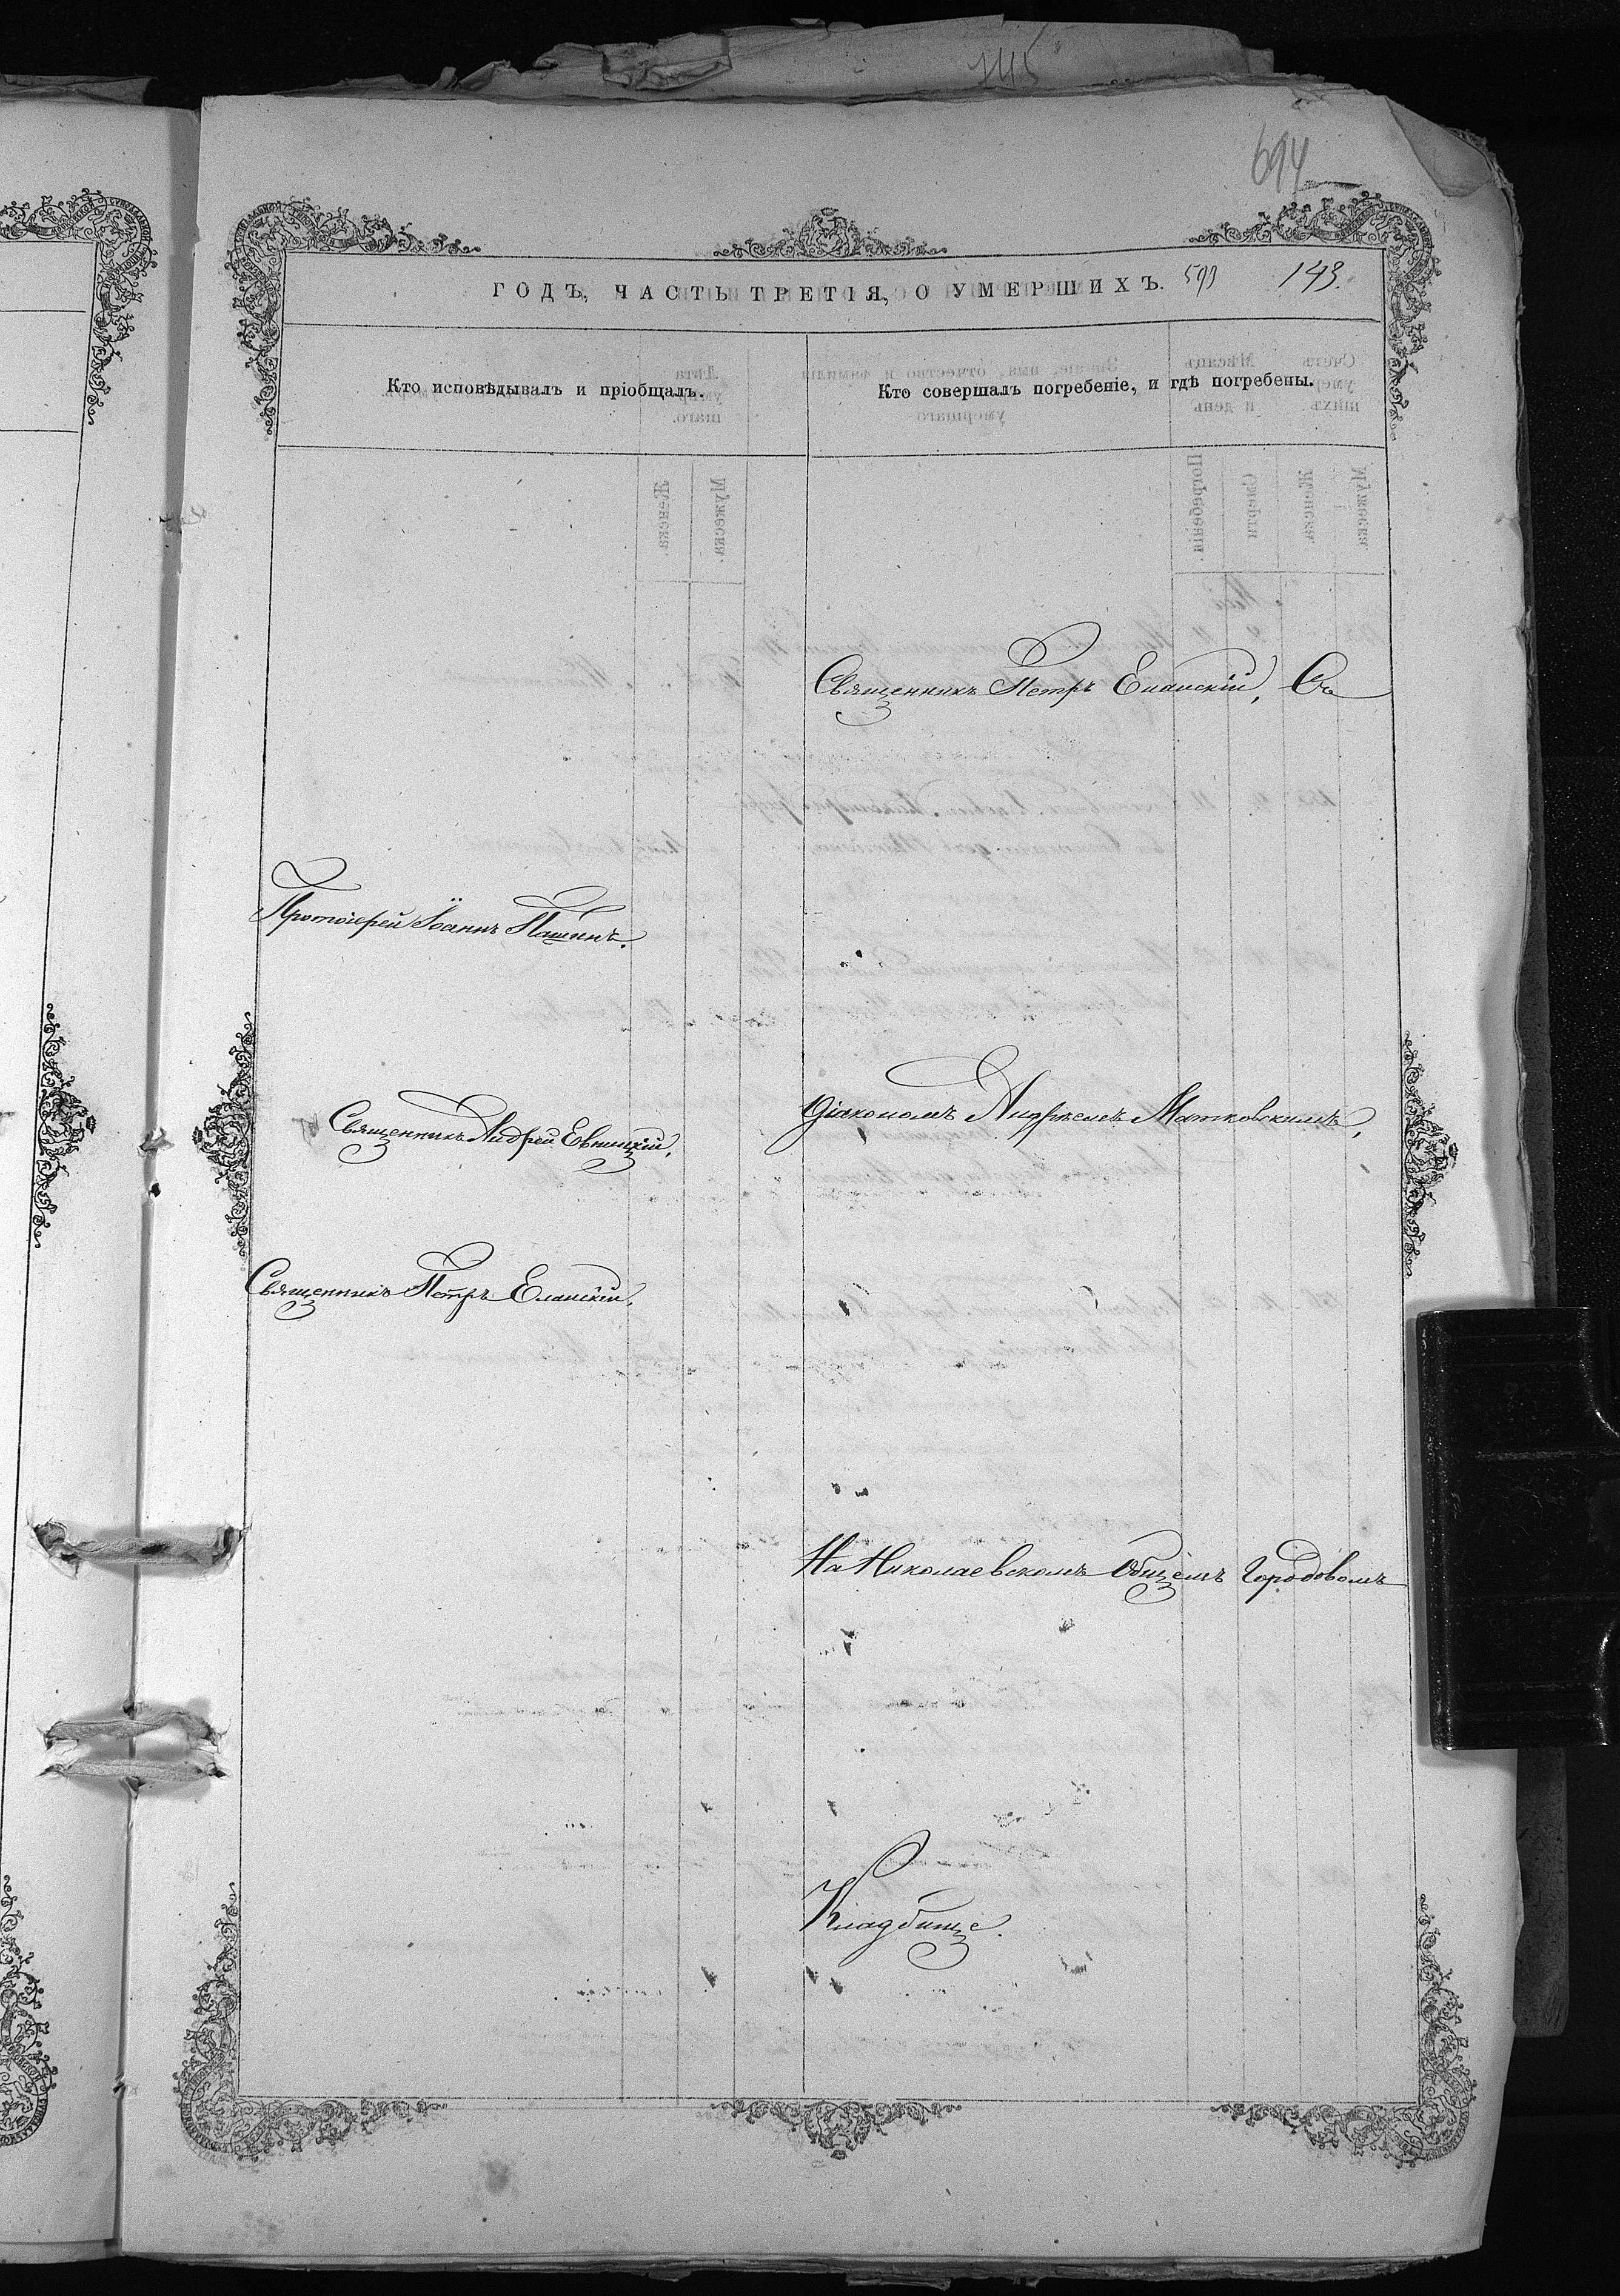 745
694
ГОДЪ, ЧАСТЬ ТРЕТІЯ, О УМЕРШИХЪ. 599 143.
Кто исповѣдывалъ и пріобщалъ.
Кто совершалъ погребеніе, и гдѣ погребены.
Священникъ Петръ Еланскій, Съ
Протоіерей Іоаннъ Пашинъ.
Священникъ Андрей Евницкій.
Діакономъ Андреемъ Матковскимъ,
Священникъ Петръ Еланскій.
На Николаевскомъ Общемъ Городовомъ
Кладбище.